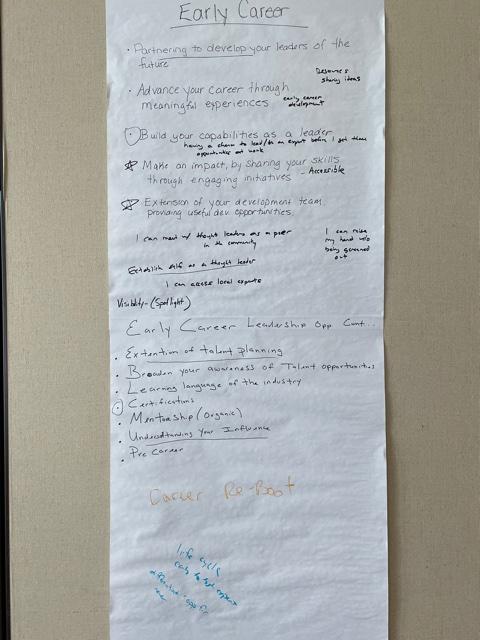 Early Career
· Partnering to develop your leaders of the
future
· Advance your career through
meaningful experiences
sharing ideas
early career
development
· Build your capabilities as a leader
having a chance to lead/be an expert before I get those
opportunities at work
Make an impact, by sharing your skills
through engaging initiatives - Accessible
Extension of your development team
providing useful dev. opportunities
I can meet w/ thought leaders as a peer
in the community
I can raise
my hand w/o
being screened
out
Establish self as a thought leader
I can access local experts
Visibility - (Spotlight)
Early Career Leadership Opp Cont...
· Extention of talent planning
· Broaden your awareness of Talent opportunities
· Learning language of the industry
· Certifications
· Mentorship (Organic)
· Understanding Your Influence
· Pre Career
Career Re-Boot
life cycle